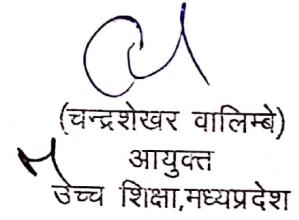 (चन्द्रशेखर वालिम्बे)
आयुक्त
उच्च शिक्षा,मध्यप्रदेश